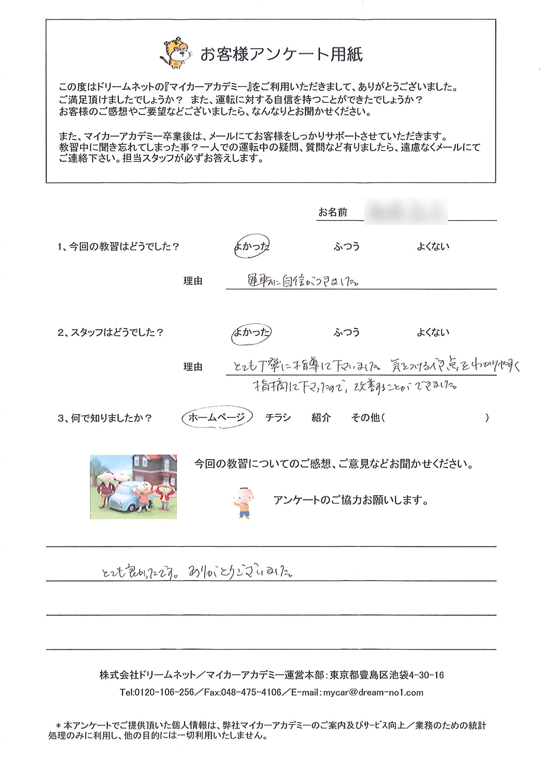 お客様アンケート用紙
この度はドリームネットの『マイカーアカデミー』をご利用いただきまして、ありがとうございました。
ご満足頂けましたでしょうか？ また、運転に対する自信を持つことができたでしょうか？
お客様のご感想やご要望などございましたら、なんなりとお聞かせください。
また、マイカーアカデミー卒業後は、メールにてお客様をしっかりサポートさせていただきます。
教習中に聞き忘れてしまった事？一人での運転中の疑問、質問など有りましたら、遠慮なくメールにて
ご連絡下さい。担当スタッフが必ずお答えします。
お名前
1、今回の教習はどうでした？ よかった ふつう よくない
理由 運転に自信がつきました。
2、スタッフはどうでした？ よかった ふつう よくない
理由 とても丁寧に指導して下さいました。気をつけるべき点をわかりやすく
指摘して下さったので、改善することができました。
3、何で知りましたか？ ホームページ チラシ 紹介 その他( )
今回の教習についてのご感想、ご意見などお聞かせください。
アンケートのご協力お願いします。
とても良かったです。ありがとうございました。
株式会社ドリームネット／マイカーアカデミー運営本部：東京都豊島区池袋4-30-16
Tel:0120-106-256／Fax:048-475-4106／E-mail:mycar@dream-no1.com
＊本アンケートでご提供頂いた個人情報は、弊社マイカーアカデミーのご案内及びサービス向上／業務のための統計
処理のみに利用し、他の目的には一切利用いたしません。